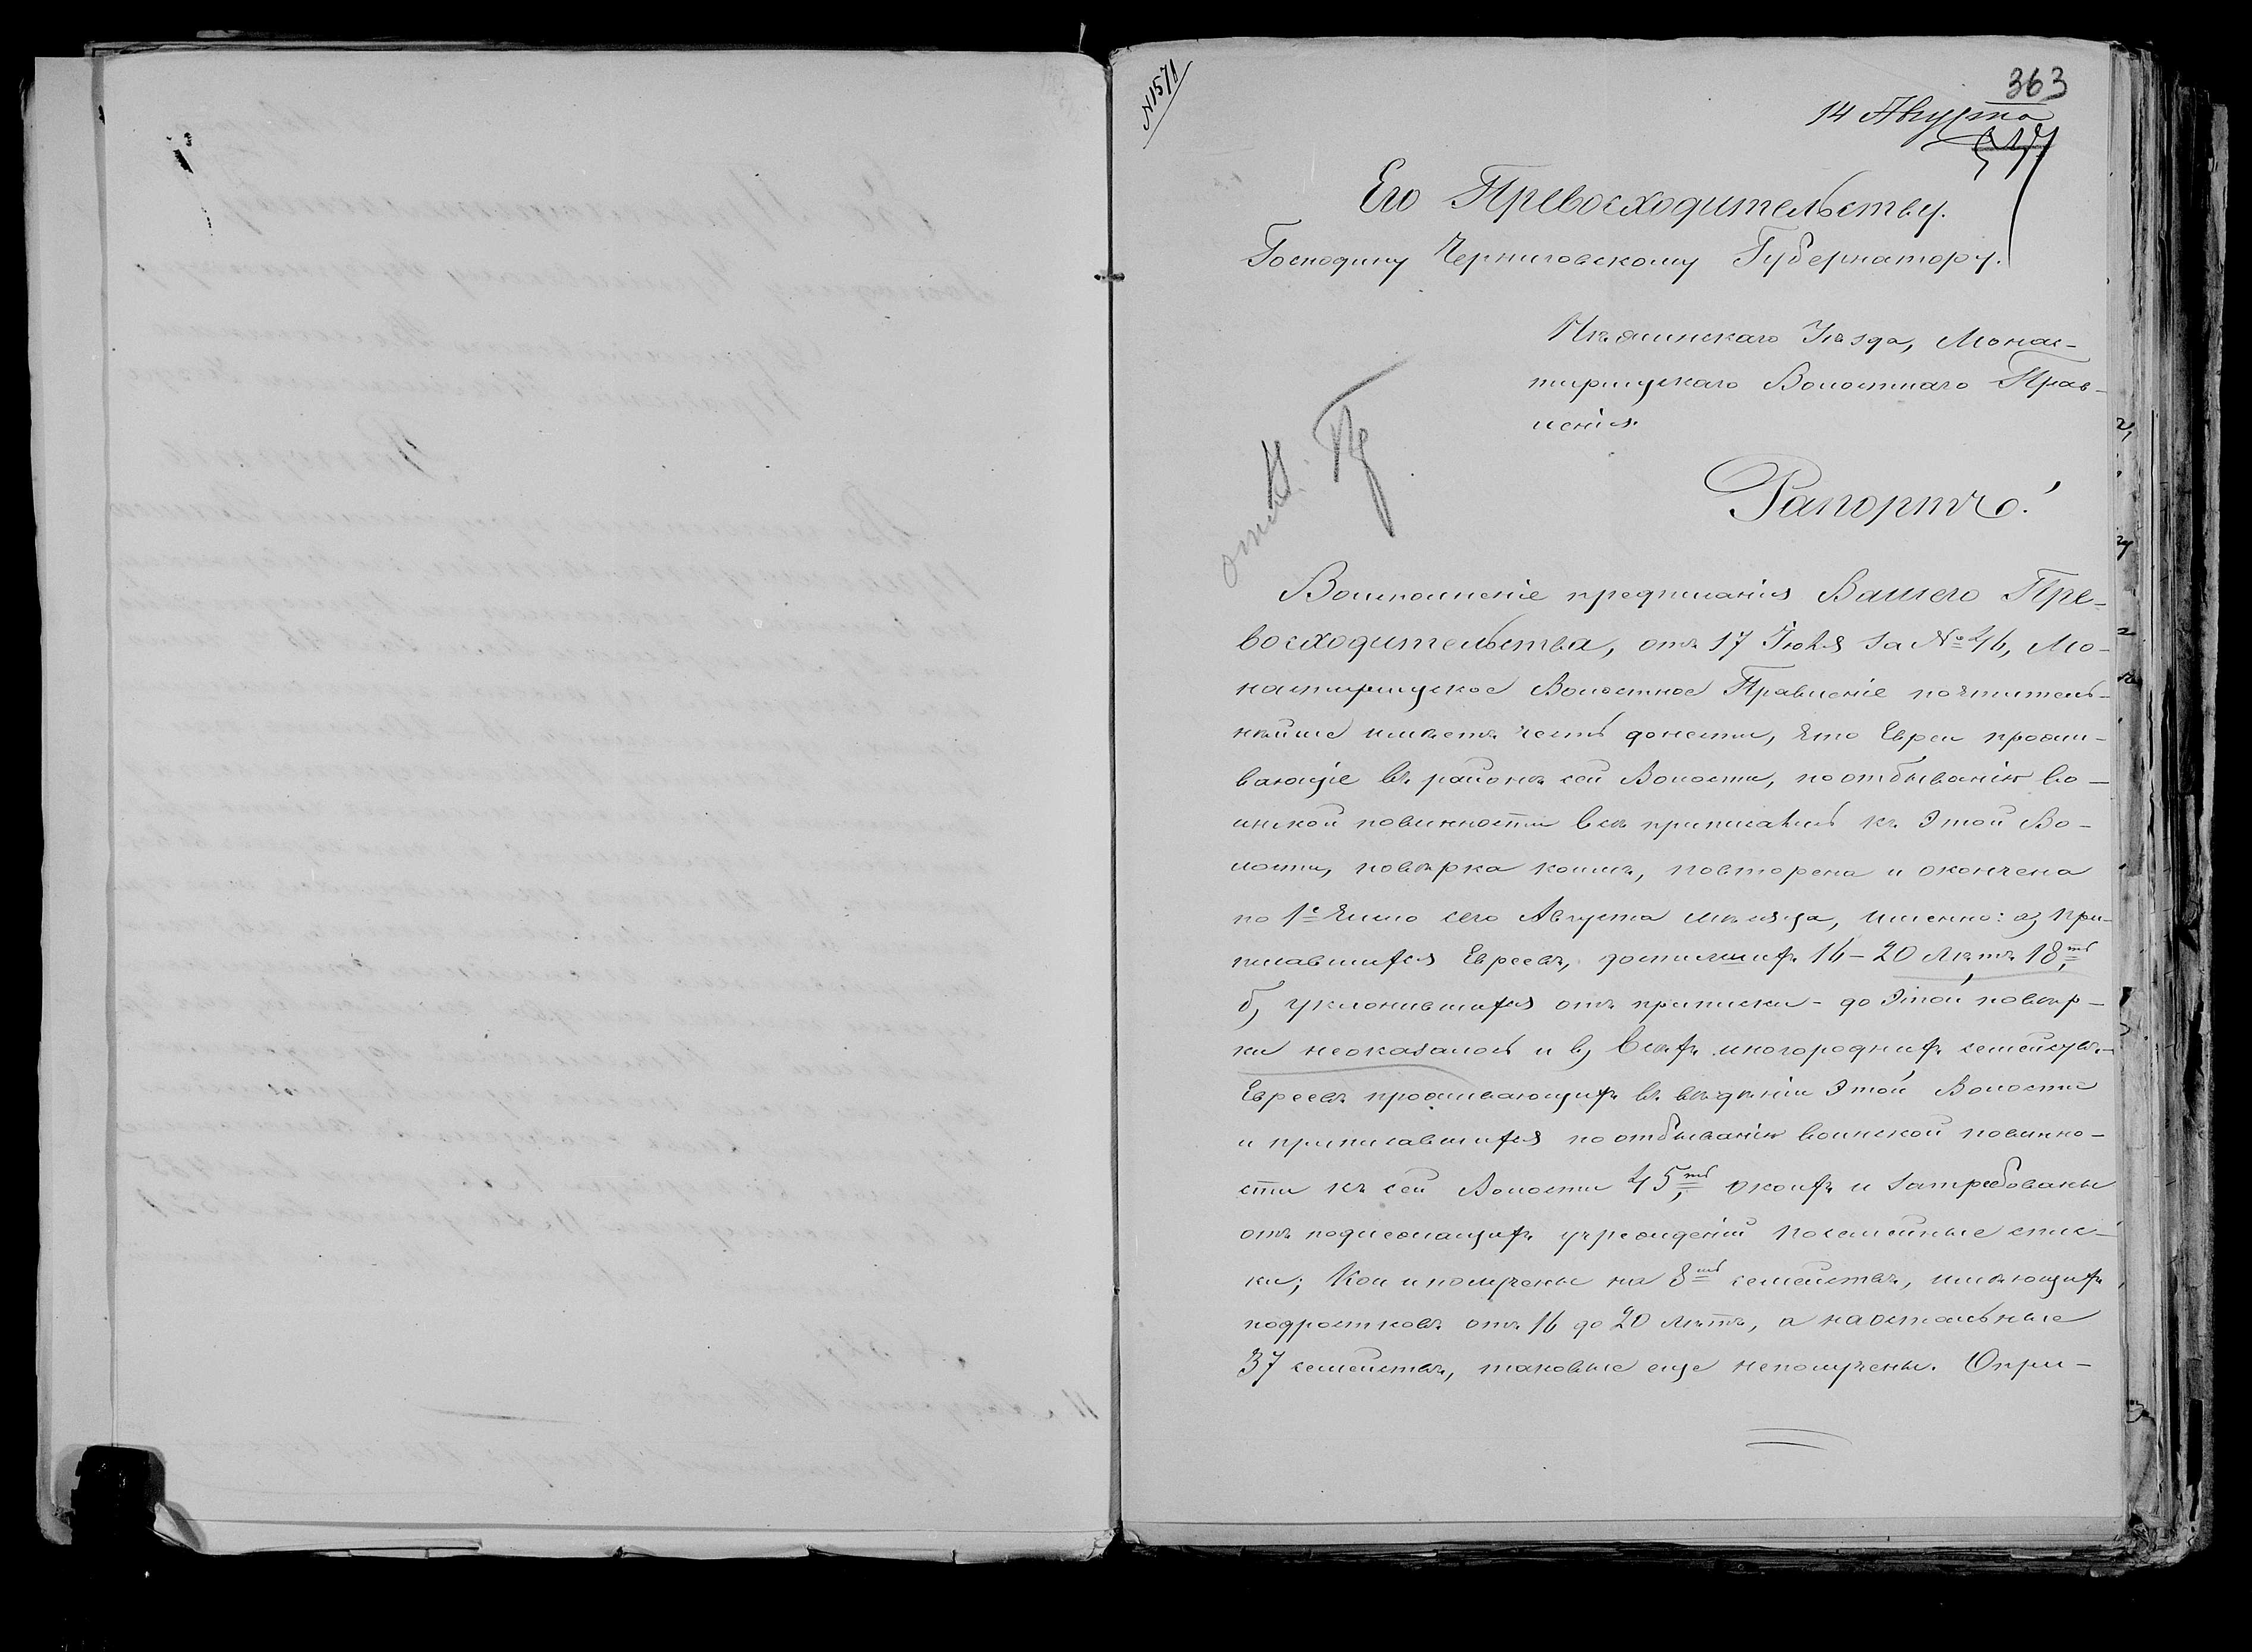 № 1571
363
14 Августа
Его Превосходительству.
Господину Черниговскому Губернатору.
Нѣжинскаго Уѣзда, Монас-
тырищскаго Волостнаго Прав-
ленія.
Рапортъ.
Воисполненіе предписанія Вашего Пре-
восходительства, отъ 17 Іюля за № 46, Мо-
настырищское Волостное Правленіе почтитель-
нѣйше имѣетъ честь донести, что Евреи прожи-
вающіе въ районѣ сей Волости, по отбыванію во-
инской повинности всѣ приписались къ этой Во-
лости, повѣрка коимъ, повторена и окончена
по 1е число сего Августа мѣсяца, именно: а) при-
писавшихся Евреевъ, достигшихъ 16-20 лѣтъ 18ть,
б) уклонившихся отъ приписки - до этой повѣр-
ки неоказалось и в) всѣхъ иногороднихъ семействъ-
Евреевъ проживающихъ въ вѣдѣніи этой Волости
и приписавшихся по отбыванію воинской повинно-
сти къ сей Волости 45ть, о коихъ и затребованы
отъ подлежащихъ учрежденій посемейные спис-
ки; кои и получены на 8мь семействъ, имѣющихъ
подростковъ отъ 16 до 20 лѣтъ, а наостальные
37 семействъ, таковые еще неполучены. Опри-